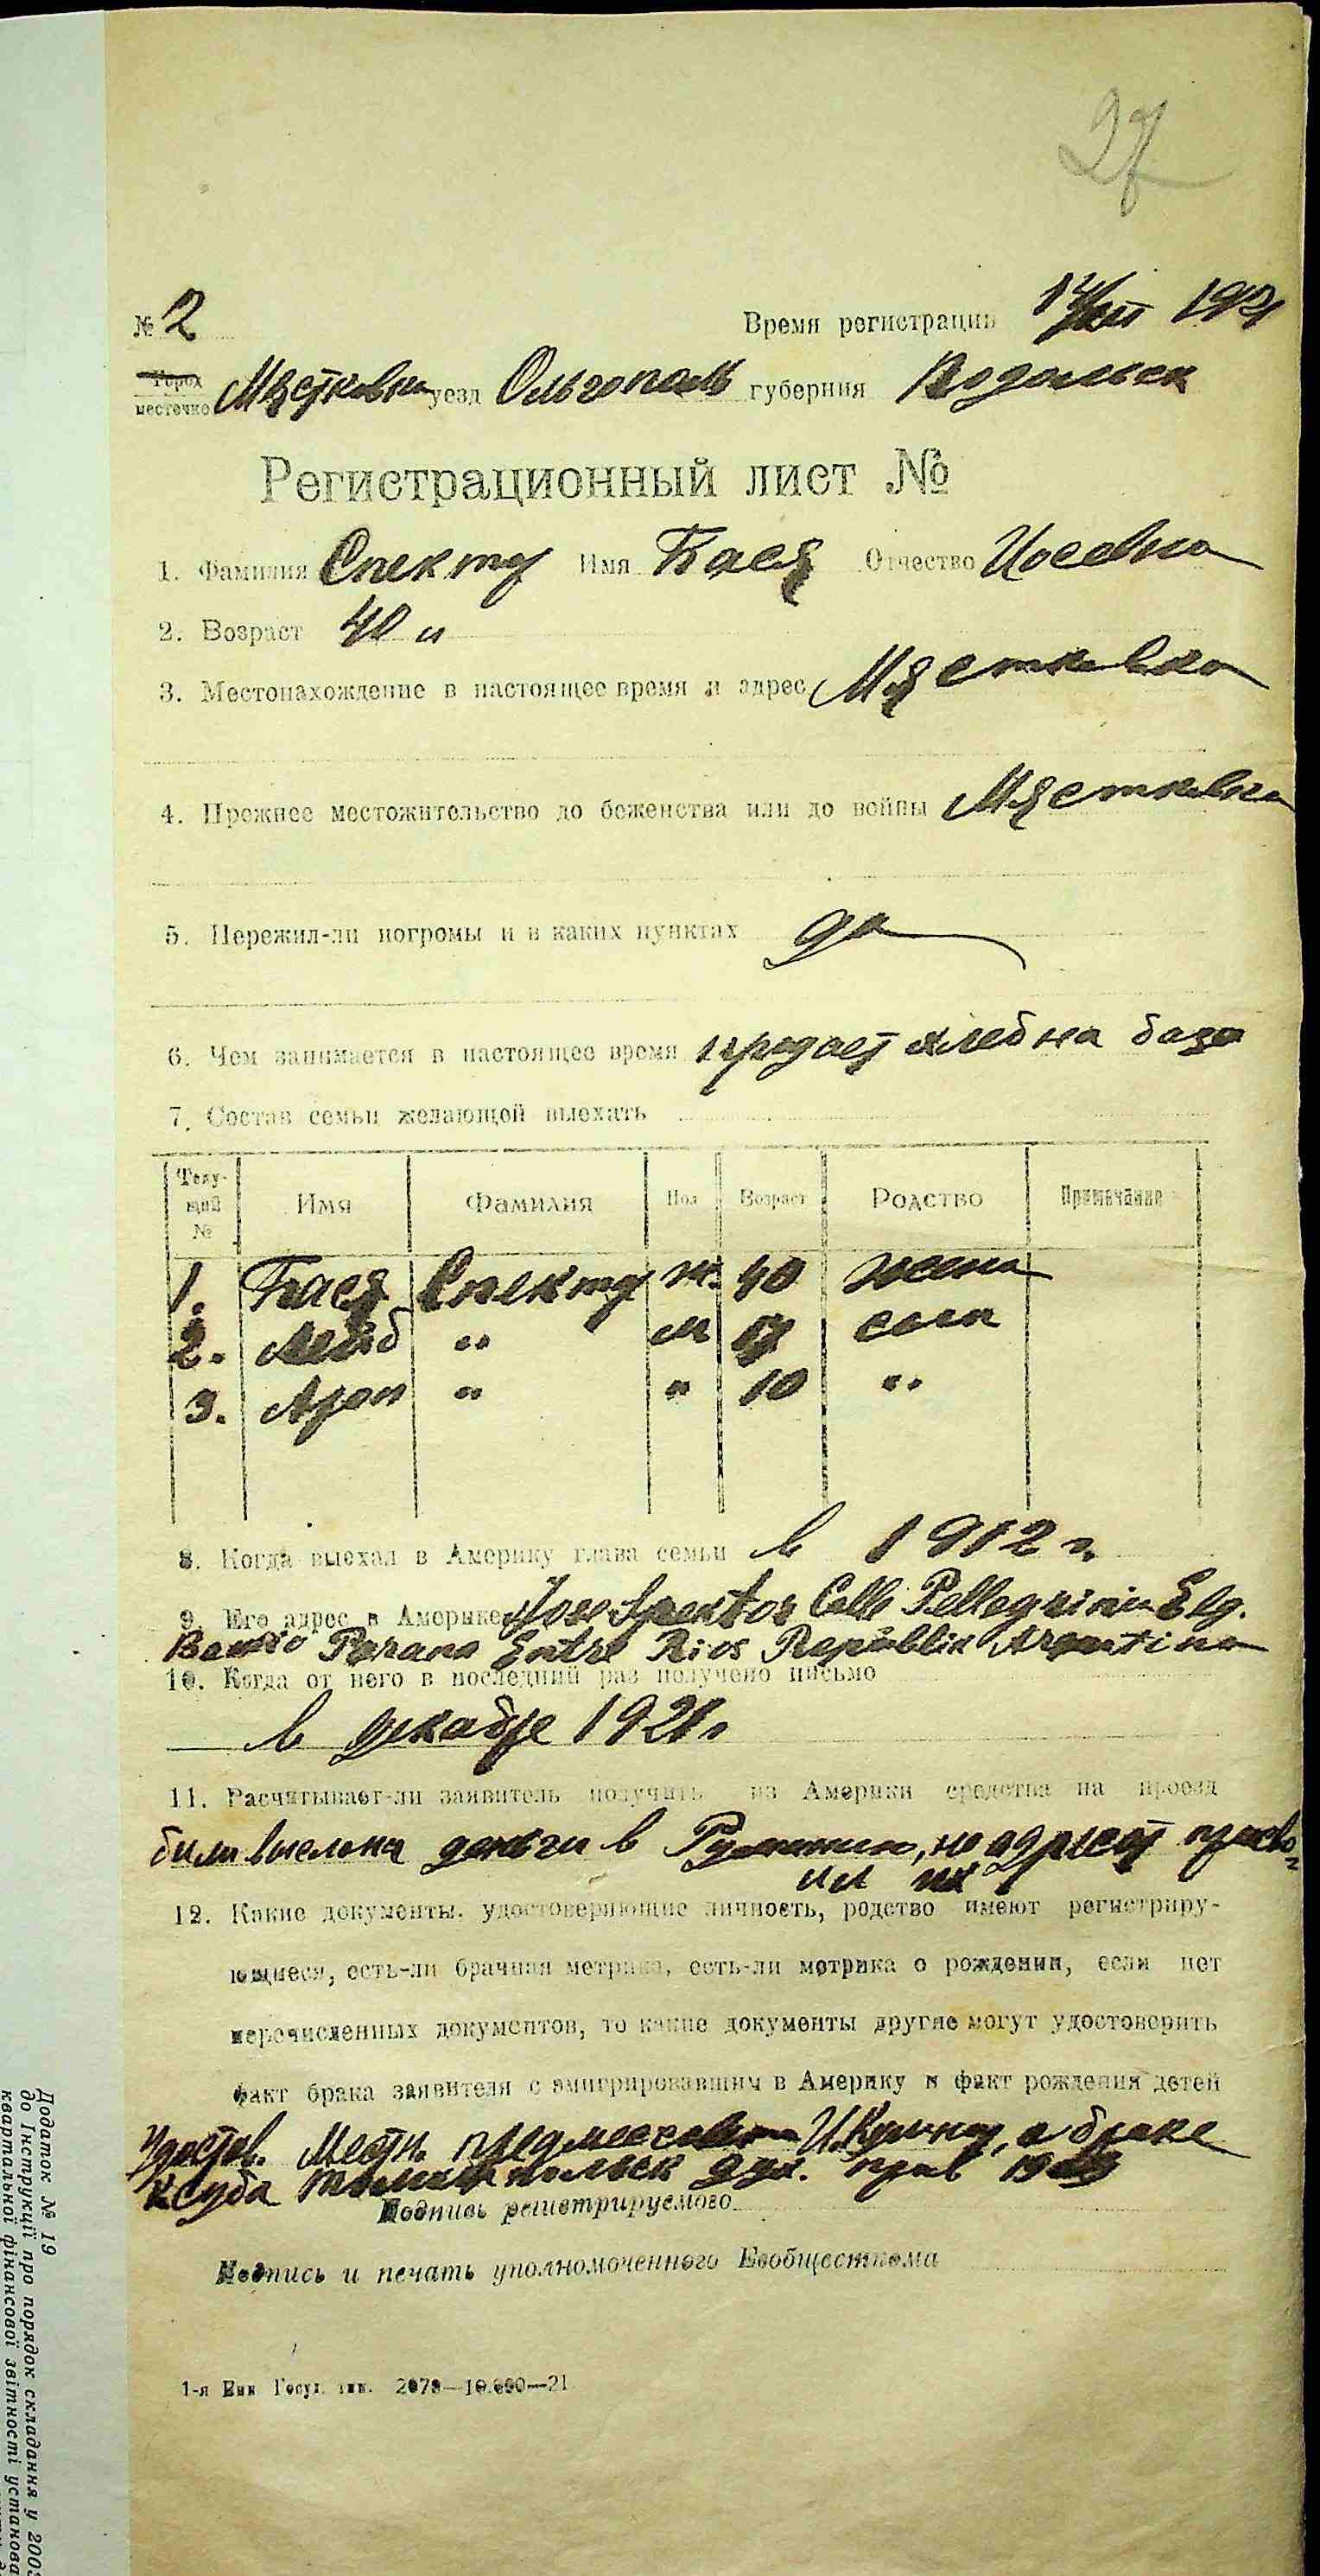 27
№ 2 Время регистрации 14/XII 1921
Город
местечко Мястковка уезд Ольгополь губерния Подольск
Регистрационный лист №
1. Фамилия Спектор Имя Бася Отчество Иосевна
2. Возраст 40 л
3. Местонахождение в настоящее время и адрес Мястковка
4. Прежнее местожительство до беженства или до войны Мястковка
5. Пережил-ли погромы и в каких пунктах да
6. Чем занимается в настоящее время продает хлеб на база
7. Состав семьи желающей выехать
Теку-
щий
№ Имя Фамилия Пол Возраст Родство Примечание
1. Бася Спектор ж. 40 жена
2. Лейб " м 17 сын
3. Арон " " 10 "
8. Когда выехал в Америку глава семьи в 1912 г.
9. Его адрес в Америке Jose Spektor Calle Pellegrini Elg.
Parana Entre Rios Republica Argentina
10. Когда от него в последний раз получено письмо
в декабре 1921 г
11. Расчитывает-ли заявитель получить из Америки средства на проезд
были высланы деньги в Румынию, но адресат присво-
ил их
12. Какие документы, удостоверяющие личность, родство имеют регистриру-
ющиеся, есть-ли брачная метрика, есть-ли метрика о рождении, если нет
перечисленных документов, то какие документы другие могут удостоверить
факт брака заявителя с эмигрировавшим в Америку и факт рождения детей
Удостов. Местн. о браке
дух. прав 19
Подпись регистрируемого
Подпись и печать уполномоченного Евобщесткома
1-я Вин Госуд. тип. 2073—10.000—21
Додаток № 19
до Інструкції про порядок складання у 2003
квартальної фінансової звітності установа